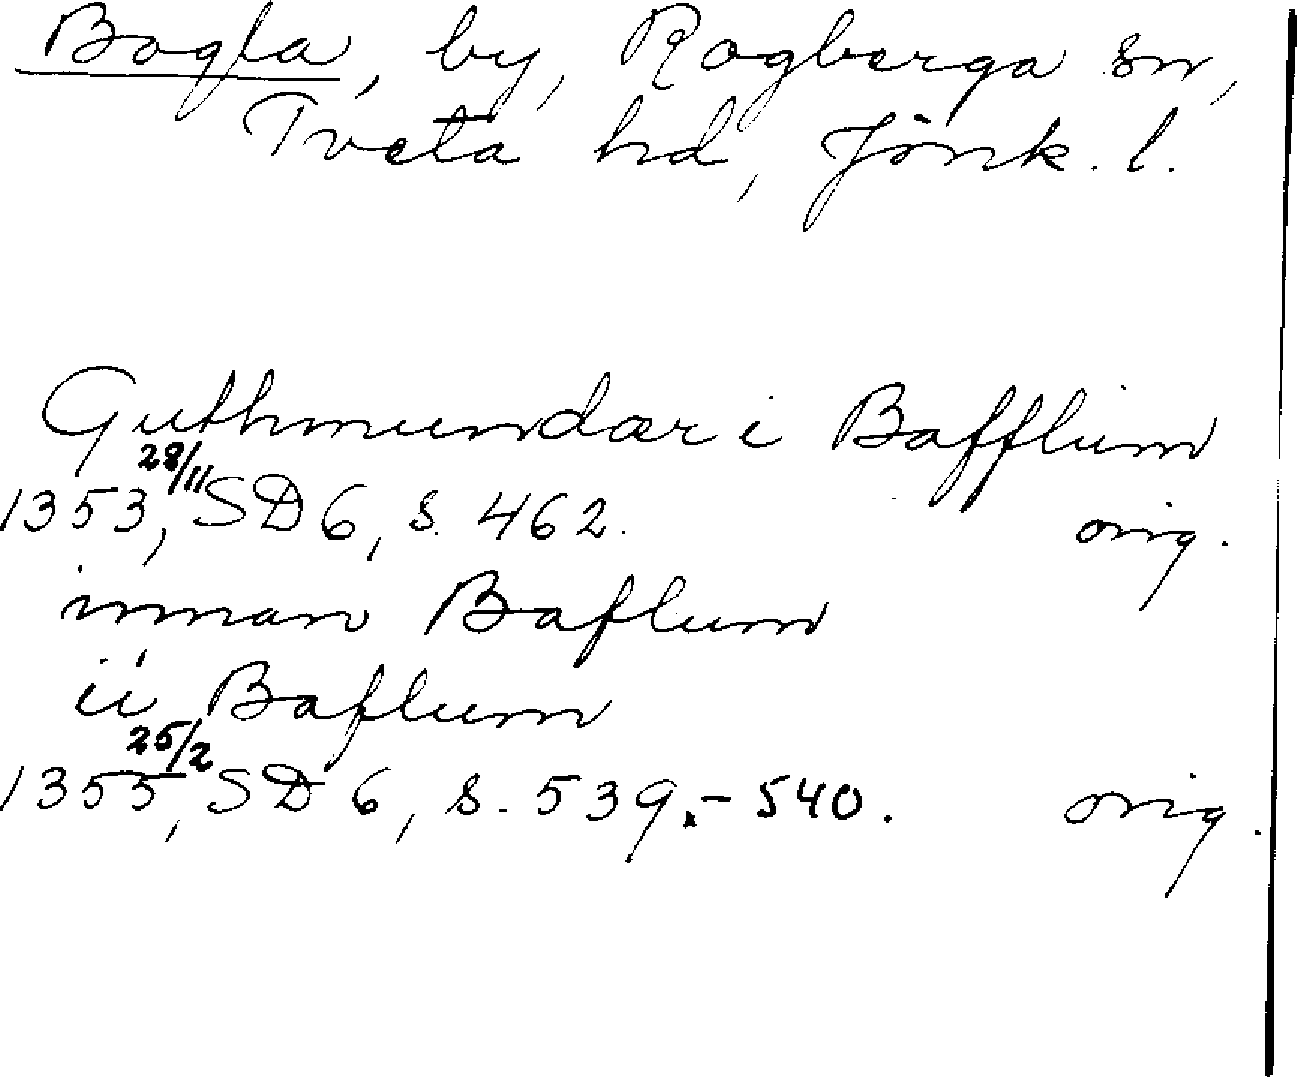 Bogla, by, Rogberga sn,
Tveta hd, Jönk. l.
Guthmundær i Bafflum
1353 28/11, SD 6, s. 462. orig.
innan Baflum
ii Baflum
1355 25/2, SD 6, s. 539.-540. orig.